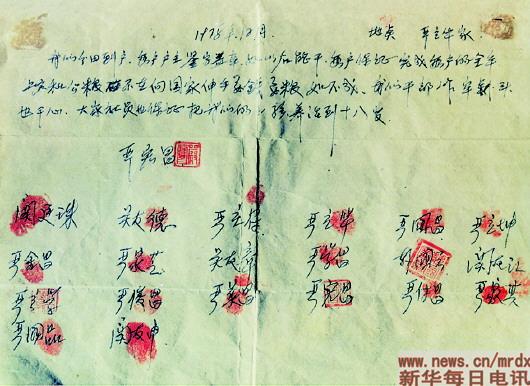 1978年12月 地点 严立华家
我们分田到户,每户户主签字盖章,如以后能干,每户保证完成每户的全年
上交和公粮,不在向国家伸手要钱要粮,如不成,我们干部作牢刹头
也干心,大家社员也保证把我们的小孩养活到十八岁。
严宏昌
关廷珠 关友德 严立符 严立华 严国昌 严立坤
严金昌 严家芝 关友章 严学昌 韩国云 关友江
严立学 严俊昌 严美昌 严宏昌 严付昌 严家其
严国品 关友申
www.news.cn/mrdx
新华每日电讯